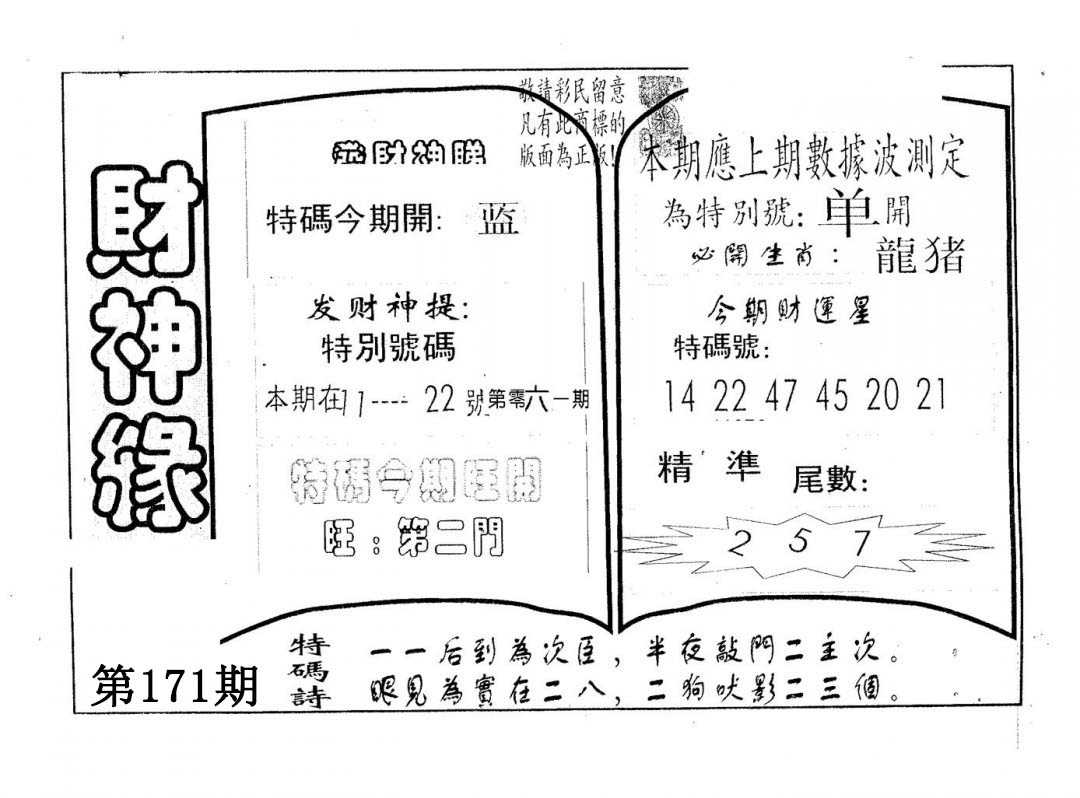 財神緣
第171期
敬請彩民留意
凡有此商標的
版面為正版!
特碼今期開: 蓝
发财神提:
特別號碼
本期在11----22號第零六一期
特碼今期旺開
旺:第二門
本期應上期數據波測定
為特別號:单開
必開生肖:龍猪
今期財運星
特碼號:
14 22 47 45 20 21
精準 尾數:
2 5 7
特碼詩
一一后到為次臣,半夜敲門二主次。
眼見為實在二八,二狗吠影二三個。